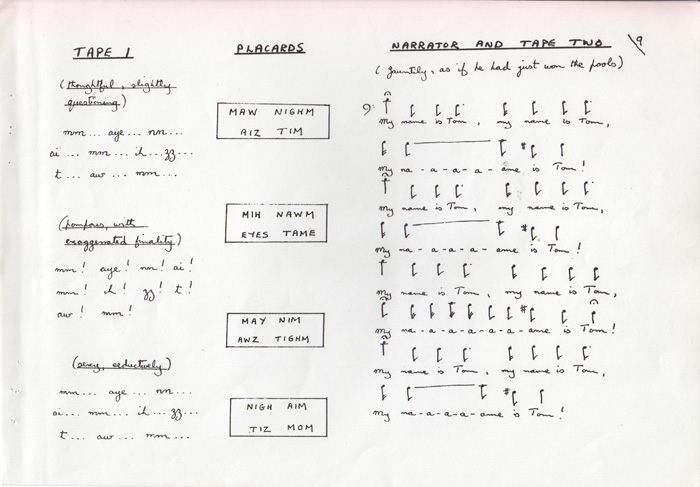 TAPE 1
(thoughtful, slightly
questioning)
mm... aye... nn...
ai ... mm... ih...zz...
t ... aw ... mm...
(pompous, with
exaggerated finality)
mm! aye! nn! ai!
mm! ih! zz! t!
aw! mm!
(sexy, seductively)
mm... aye ... nn...
ai... mm... ih... zz...
t ... aw ... mm...
PLACARDS
MAW NIGHM
AIZ TIM
MIH NAWM
EYES TAME
MAY NIM
AWZ TIGHM
NIGH AIM
TIZ MOM
NARRATOR AND TAPE TWO
9
(jauntily, as if he had just won the pools)
my name is Tom, my name is Tom,
my na-a-a-a-ame is Tom!
my name is Tom, my name is Tom,
my na-a-a-a-ame is Tom!
my name is Tom, my name is Tom,
my na-a-a-a-a-a-ame is Tom!
my name is Tom, my name is Tom,
my na-a-a-a-ame is Tom!